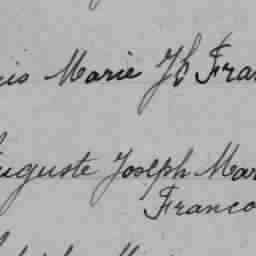 uis Marie Jh Fran
Auguste Joseph Mar
Franco